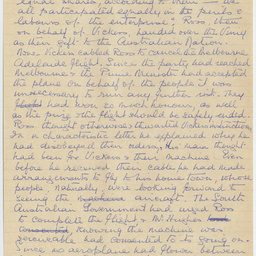 equal shares according to them — we
all participated equally in the prize &
labours of the enterprise". Ross then
on behalf of Vickers, handed over the Vimy
as their gift to the Australian Nation.
Vickers cabled Ross to cancel the Melbourne
Adelaide flight. Since the party had reached
Melbourne & the Prime Minister had accepted
the plane on behalf of the people it was
unnecessary to run any further risk. They
had won so much honour, as well
as the prize & the flight should be safely ended.
Ross thought otherwise & thwarted Vickers' intention.
In a characteristic letter he explained why he
had disobeyed their orders, his main thought
had been for Vickers & their machine. Even
before he received their cable he had made
arrangements to fly to his home town, whose
people, naturally, were looking forward to
seeing the aircraft. The South
Australian Government had urged Ross
to complete the flight & Mr Hughes
knowing the machine was
serviceable had consented to its going on.
Since no aeroplane had flown between